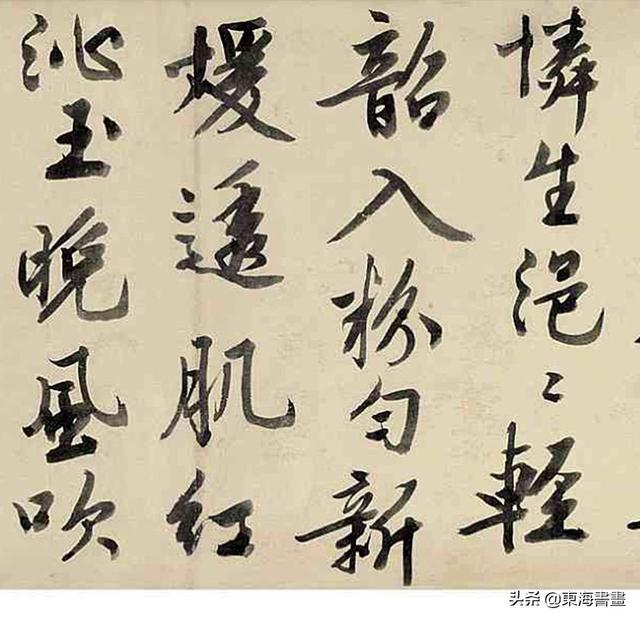 憐生浥〻輕
韶入粉勻新
煖透肌紅
沁玉晚風吹
头条 @東海書畫